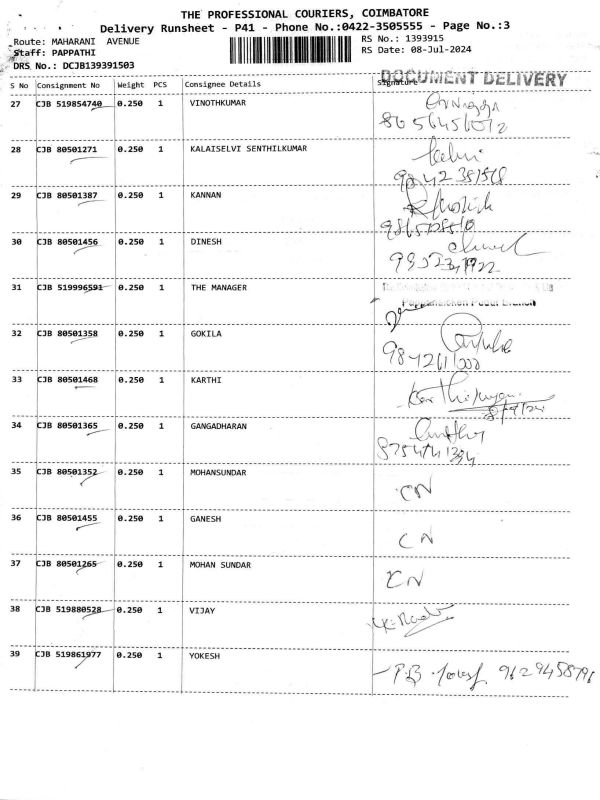 THE PROFESSIONAL COURIERS, COIMBATORE
Delivery Runsheet - P41 - Phone No.:0422-3505555 - Page No.:3
Route: MAHARANI AVENUE
RS No.: 1393915
Staff: PAPPATHI
RS Date: 08-Jul-2024
DRS No.: DCJB139391503
DOCUMENT DELIVERY
S No Consignment No Weight PCS Consignee Details Signature
27 CJB 519854740 0.250 1 VINOTHKUMAR
28 CJB 80501271 0.250 1 KALAISELVI SENTHILKUMAR
29 CJB 80501387 0.250 1 KANNAN
30 CJB 80501456 0.250 1 DINESH
31 CJB 519996591 0.250 1 THE MANAGER
32 CJB 80501358 0.250 1 GOKILA
33 CJB 80501468 0.250 1 KARTHI
34 CJB 80501365 0.250 1 GANGADHARAN
35 CJB 80501352 0.250 1 MOHANSUNDAR CN
36 CJB 80501455 0.250 1 GANESH CN
37 CJB 80501265 0.250 1 MOHAN SUNDAR CN
38 CJB 519880528 0.250 1 VIJAY
39 CJB 519861977 0.250 1 YOKESH 9629458796